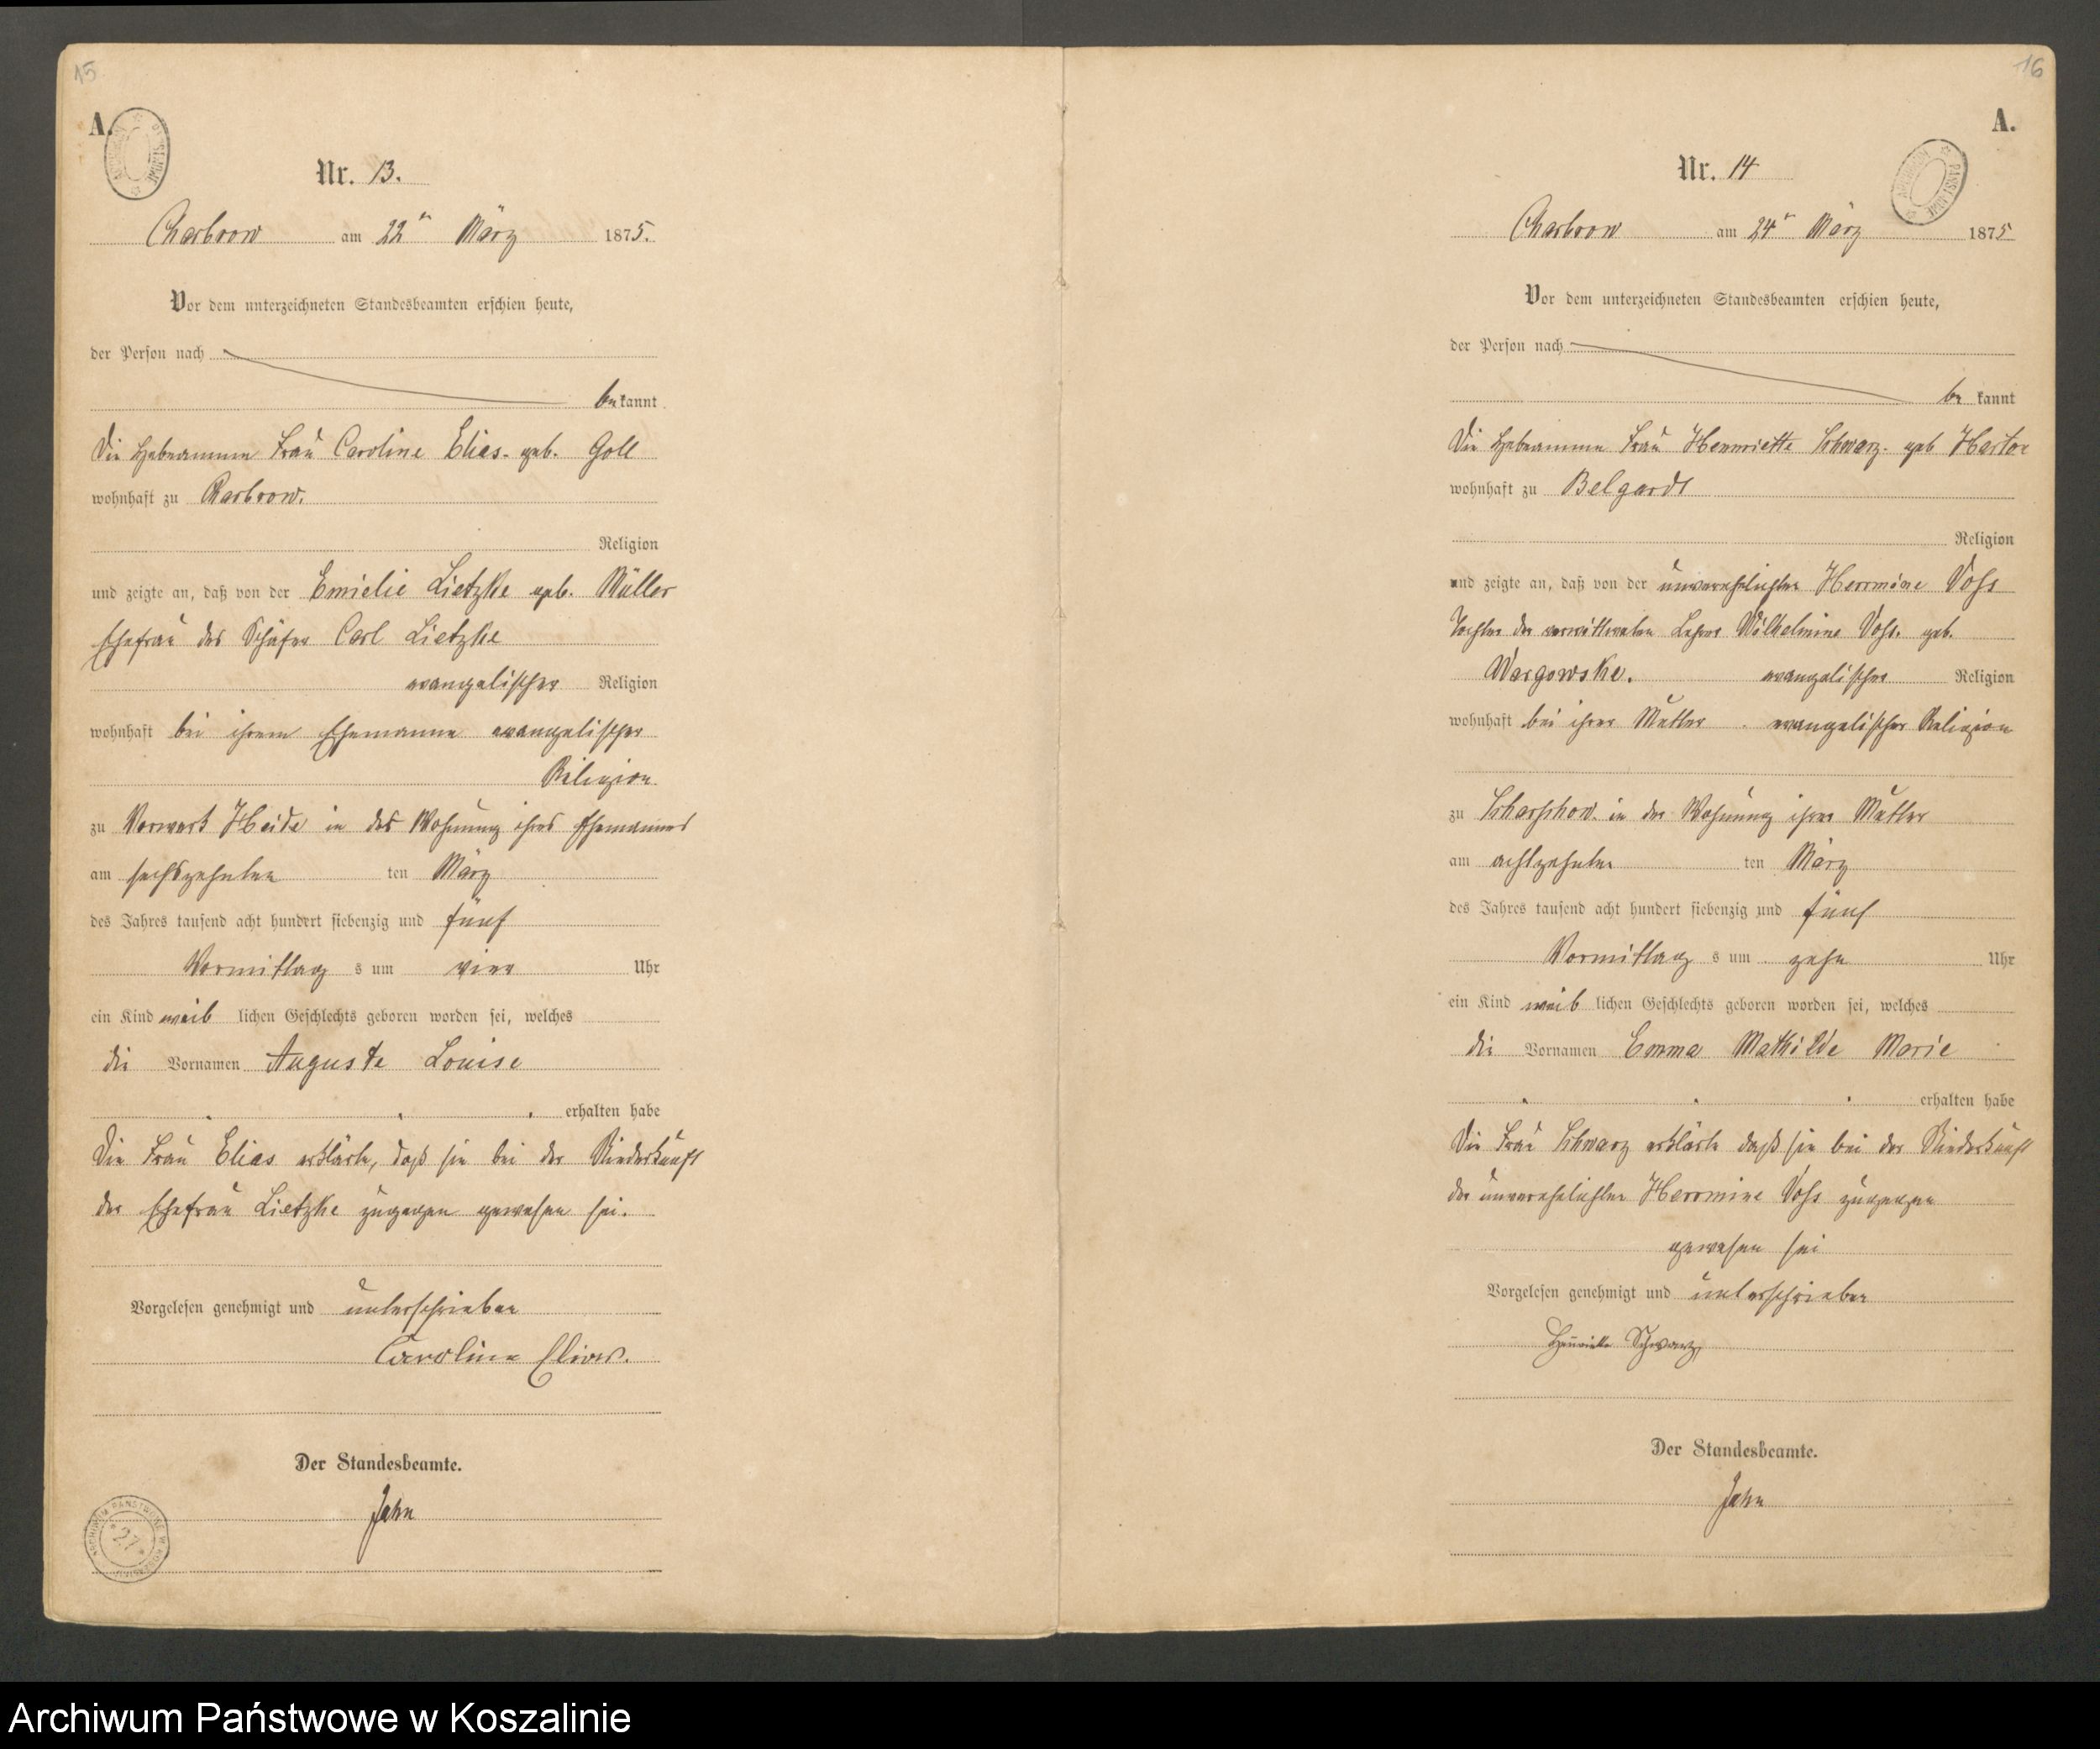 15
A.
Nr. 13.
Charbrow am 22ten März 1875.
Vor dem unterzeichneten Standesbeamten erschien heute,
der Person nach
bekannt
Die Hebeamme Frau Caroline Elias. geb. Goll
wohnhaft zu Charbrow.
Religion
und zeigte an, daß von der Emielie Lietzke geb. Müller
Ehefrau des Schäfer Carl Lietzke
evangelischer Religion
wohnhaft bei ihrem Ehemanne evangelischer
Religion
zu Vorwerk Heide in der Wohnung ihres Ehemannes
am sechszehnten ten März
des Jahres tausend acht hundert siebenzig und fünf
Vormittag s um vier Uhr
ein Kind weib lichen Geschlechts geboren worden sei, welches
die Vornamen Auguste Louise
erhalten habe
Die Frau Elias erklärte, daß sie bei der Niederkunft
der Ehefrau Lietzke zugegen gewesen sei.
Vorgelesen genehmigt und unterschrieben
Caroline Elias.
Der Standesbeamte.
Jahn
ARCHIWUM PAŃSTWOWE W KOSZALINIE
27
16
A.
ARCHIWUM PAŃSTWOWE
Nr. 14
Charbrow am 24ten März 1875
Vor dem unterzeichneten Standesbeamten erschien heute,
der Person nach
be kannt
Die Hebeamme Frau Hennriette Schwarz. geb
wohnhaft zu Belgard
Religion
und zeigte an, daß von der unverehelichten Hermine Voss
Tochter der verwittweten Lehrer Wilhelmine Voss. geb.
Wargowske. evangelischer Religion
wohnhaft bei ihrer Mutter. evangelischer Religion
zu Scharschow in der Wohnung ihrer Mutter
am achtzehnten ten März
des Jahres tausend acht hundert siebenzig und fünf
Vormittag s um zehn Uhr
ein Kind weib lichen Geschlechts geboren worden sei, welches
die Vornamen Emma Mathilde Marie
erhalten habe
Die Frau Schwarz erklärte daß sie bei der Niederkunft
der unverehelichten Herrmine Voss zugegen
gewesen sei
Vorgelesen genehmigt und unterschrieben
Henriette Schwarz,
Der Standesbeamte.
Jahn
Archiwum Państwowe w Koszalinie